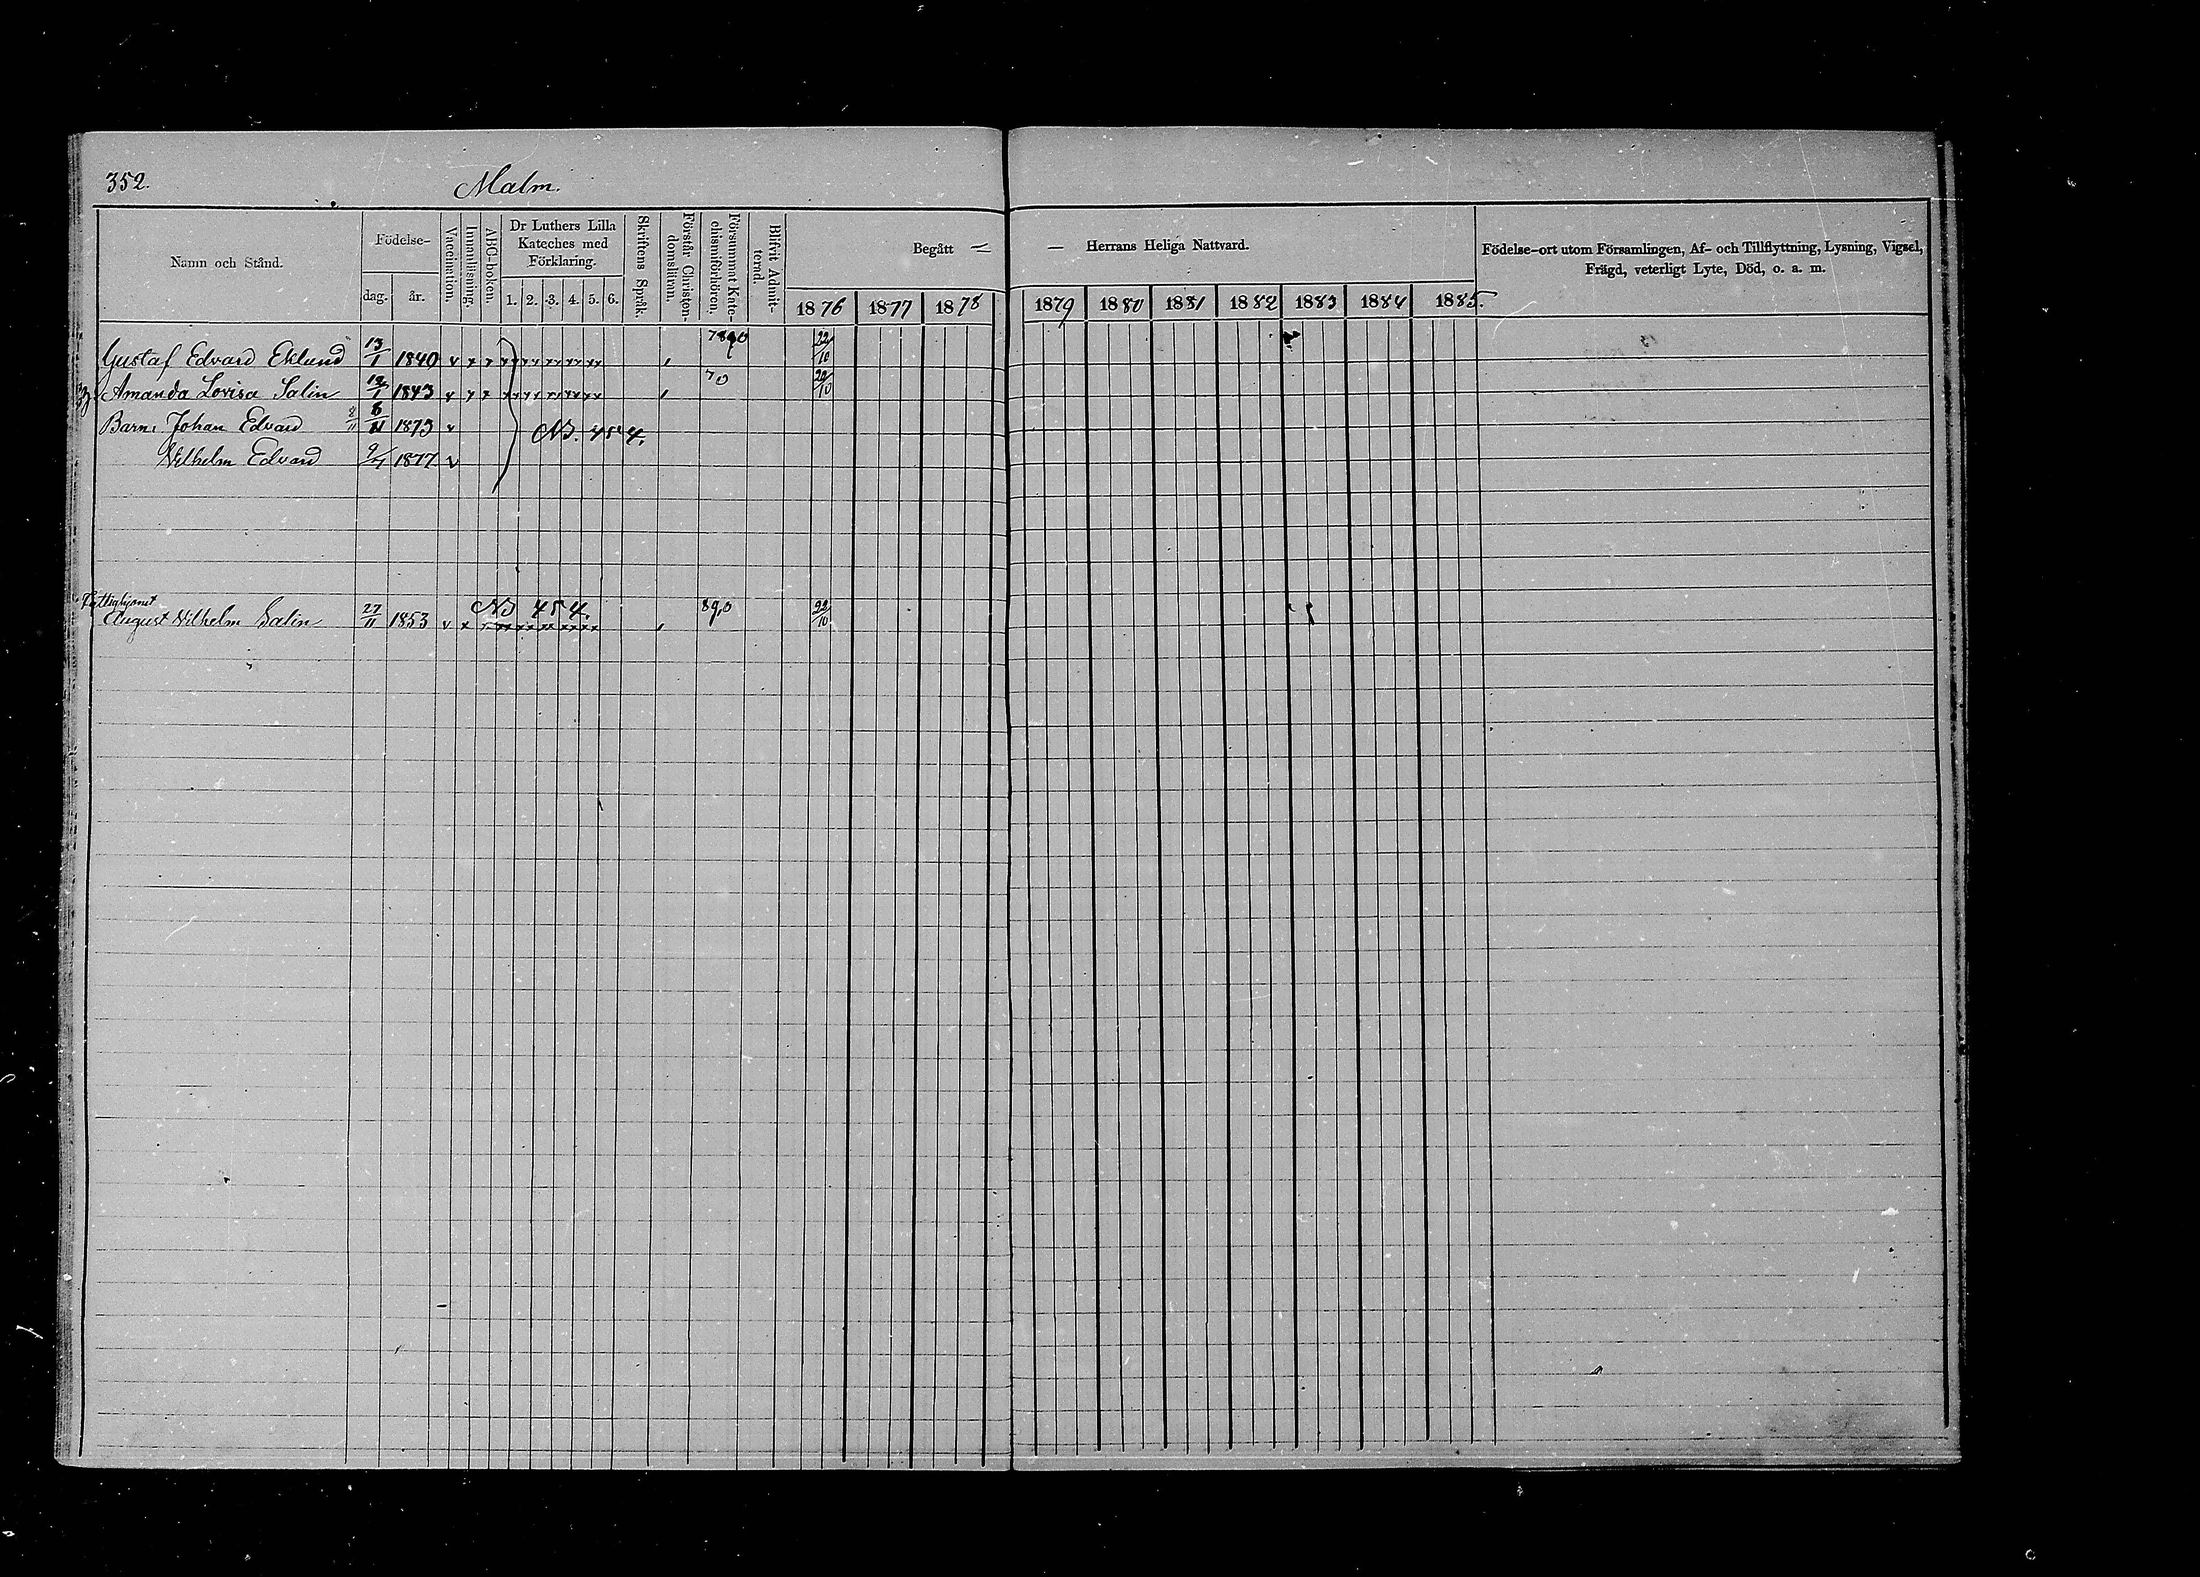 352.
Malm.
Namn och Stånd.
Födelse-
dag.
år.
Vaccination.
Innanläsning.
ABC-boken.
Dr Luthers Lilla
Kateches med
Förklaring.
1. 2. 3. 4. 5. 6.
Skriftens Språk.
Förstår Christen-
domsläran.
Försummat Kate-
chismiförhören.
Blifvit Admit-
terad.
Begått — — Herrans Heliga Nattvard.
1876 1877 1878 1879 1880 1881 1882 1883 1884 1885.
Födelse-ort utom Församlingen, Af- och Tillflyttning, Lysning, Vigsel,
Frägd, veterligt Lyte, Död, o. a. m.
Gustaf Edvard Eklund 13/1 1840 22/10
Amanda Lovisa Salin 1843 70 22/10
Barn: Johan Edvard 8/11 8/11 1873 v 454.
Vilhelm Edvard 9/1 1877 v
Fattighjonet
August Vilhelm Salin 27/11 1853 v x 454. 89,0 22/10